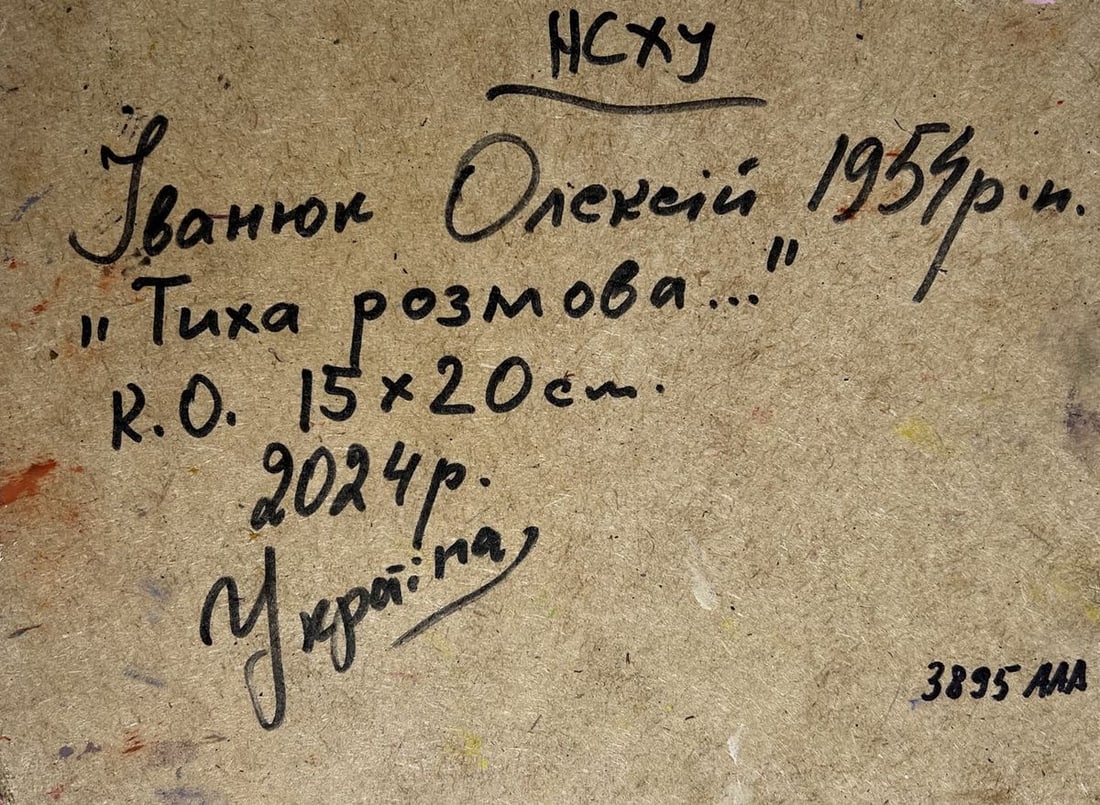 НСХУ
Іванюк Олексій 1954 р.н.
"Тиха розмова..."
К.О. 15×20 см.
2024 р.
Україна
3895 ААА